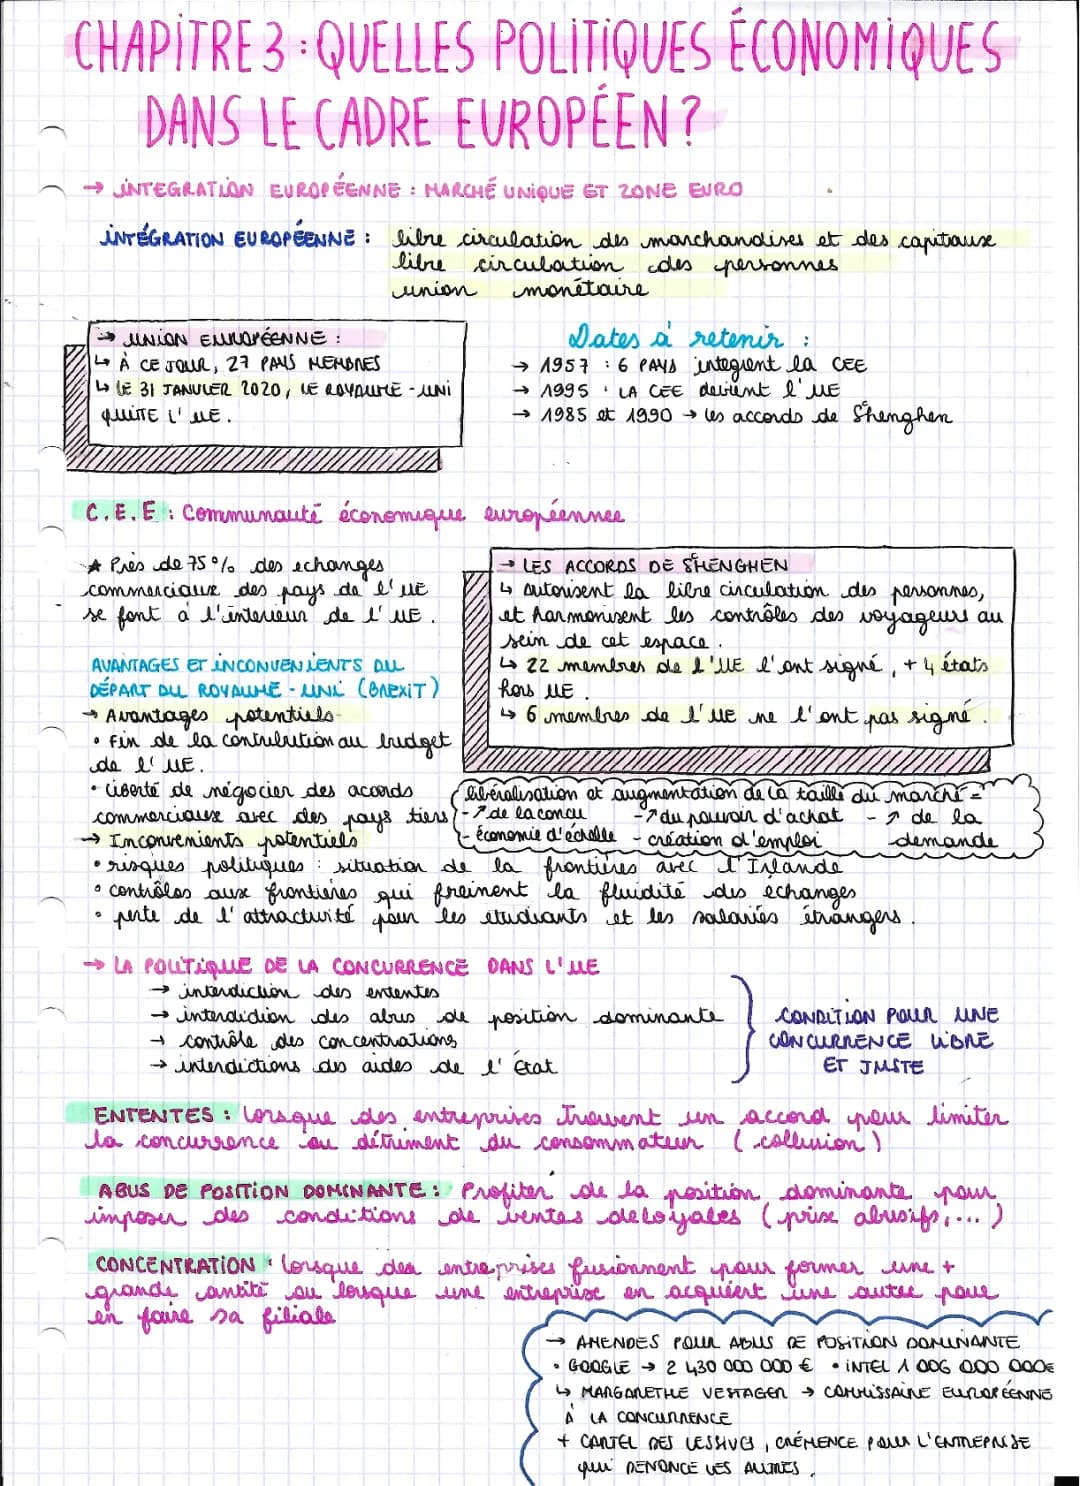 CHAPITRE 3 : QUELLES POLITIQUES ÉCONOMIQUES
DANS LE CADRE EUROPÉEN ?
→ INTEGRATION EUROPÉENNE : MARCHÉ UNIQUE ET ZONE EURO
INTÉGRATION EUROPÉENNE : libre circulation des marchandises et des capitaux
libre circulation des personnes
union monétaire
→ UNION EUROPÉENNE :
↳ À CE JOUR, 27 PAYS MEMBRES
↳ LE 31 JANVIER 2020, LE ROYAUME-UNI
QUITE L'UE.
Dates à retenir :
→ 1957 : 6 PAYS intègrent la CEE
→ 1995 : LA CEE devient l'UE
→ 1985 et 1990 → les accords de Shenghen
C.E.E : Communauté économique européennee
★ Près de 75% des echanges
commerciaux des pays de l'UE
se font à l'interieur de l'UE.
→ LES ACCORDS DE SHENGHEN
↳ autorisent la libre circulation des personnes,
et harmonisent les contrôles des voyageurs au
sein de cet espace.
↳ 22 membres de l'UE l'ont signé, + 4 états
hors UE.
↳ 6 membres de l'UE ne l'ont pas signé.
AVANTAGES ET INCONVENIENTS DU
DÉPART DU ROYAUME-UNI (BREXIT)
→ Avantages potentiels
• Fin de la contribution au budget
de l'UE.
• Liberté de négocier des acords
commerciaux avec des pays tiers
libéralisation et augmentation de la taille du marché =
- ↗ de la concu - ↗ du pouvoir d'achat - ↗ de la
- économie d'échelle - création d'emploi demande
→ Inconvenients potentiels
• risques politiques : situation de la frontières avec l'Irlande
• contrôles aux frontières qui freinent la fluidité des échanges
• perte de l'attractivité pour les étudiants et les salariés étrangers.
→ LA POLITIQUE DE LA CONCURRENCE DANS L'UE
→ interdiction des ententes
→ interdidion des abus de position dominante
→ contrôle des concentrations
→ interdictions des aides de l'État
CONDITION POUR UNE
CONCURRENCE LIBRE
ET JUSTE
ENTENTES : lorsque des entreprises trouvent un accord pour limiter
la concurrence au détriment du consommateur (collusion)
ABUS DE POSITION DOMINANTE : Profiter de la position dominante pour
imposer des conditions de ventes deloyales (prix abusifs,...)
CONCENTRATION : lorsque des entreprises fusionment pour former une +
grande cantité ou lorsque une entreprise en acquiért une autre pour
en faire sa filiale
→ AMENDES POUR ABUS DE POSITION DOMINANTE
• GOOGLE → 2 430 000 000 € • INTEL 1 006 000 000€
↳ MARGARETHE VESTAGER → COMMISSAIRE EUROPÉENNE
À LA CONCURRENCE
+ CARTEL DES LESSIVES, CRÉMENCE POUR L'ENTREPRISE
qui DENONCE LES AUTRES.